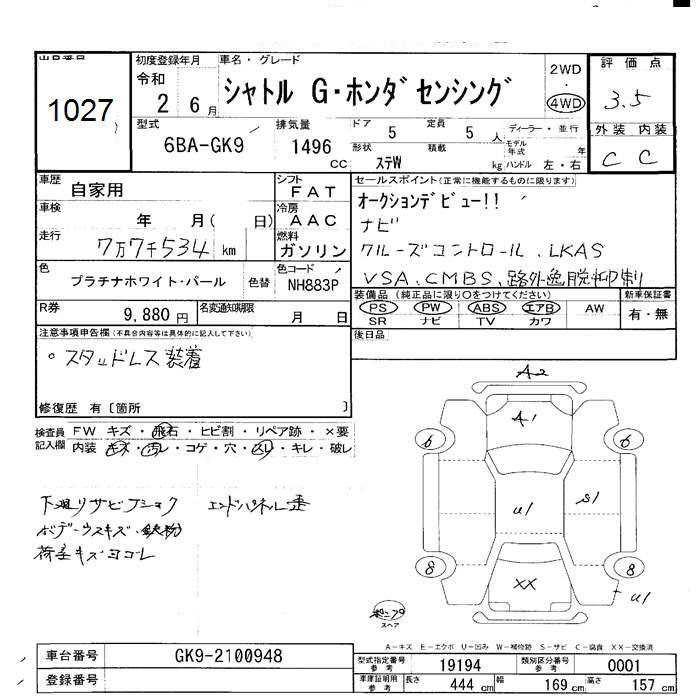 出品番号 初度登録年月 車名・グレード 2WD 評価点
1027 令和 2 6月 シャトル G・ホンダセンシング 4WD 3.5
型式 排気量 ドア 定員 ディーラー・並行 外装 内装
6BA-GK9 1496 CC 5 5人 C C
形状 積載 モデル年式 年
ステW kg ハンドル 左・右
車歴 自家用 シフト FAT セールスポイント(正常に機能するものに限ります)
車検 年 月( 日) 冷房 AAC オークションデビュー!!
走行 7万7千534 km 燃料 ガソリン ナビ
クルーズコントロール、LKAS
色 プラチナホワイト・パール 色替 色コード NH883P VSA、CMBS、路外逸脱抑制
R券 9,880円 名変通知期限 月 日 装備品(純正品に限り○をつけてください) 新車保証書
PS PW ABS エアB AW 有・無
SR ナビ TV カワ
注意事項申告欄(不具合内容等は具体的に記入して下さい) 後日品
。スタッドレス装着
修復歴 有〔箇所 〕
検査員記入欄 FW キズ・飛石・ヒビ割・リペア跡・×要
内装 キズ・汚レ・コゲ・穴・スレ・キレ・破レ
下廻リサビブショク エンドパネル歪
ボデーウスキズ・鉄粉
荷室キズヨゴレ
A2
A1
6 6
U1 S1
8 8
XX U1
スペア
A-キズ E-エクボ U-凹み W-補修跡 S-サビ C-腐食 XX-交換済
車台番号 GK9-2100948 型式指定番号 参考 19194 類別区分番号 参考 0001
登録番号 車庫証明用 参考 長さ 444cm 幅 169cm 高さ 157cm